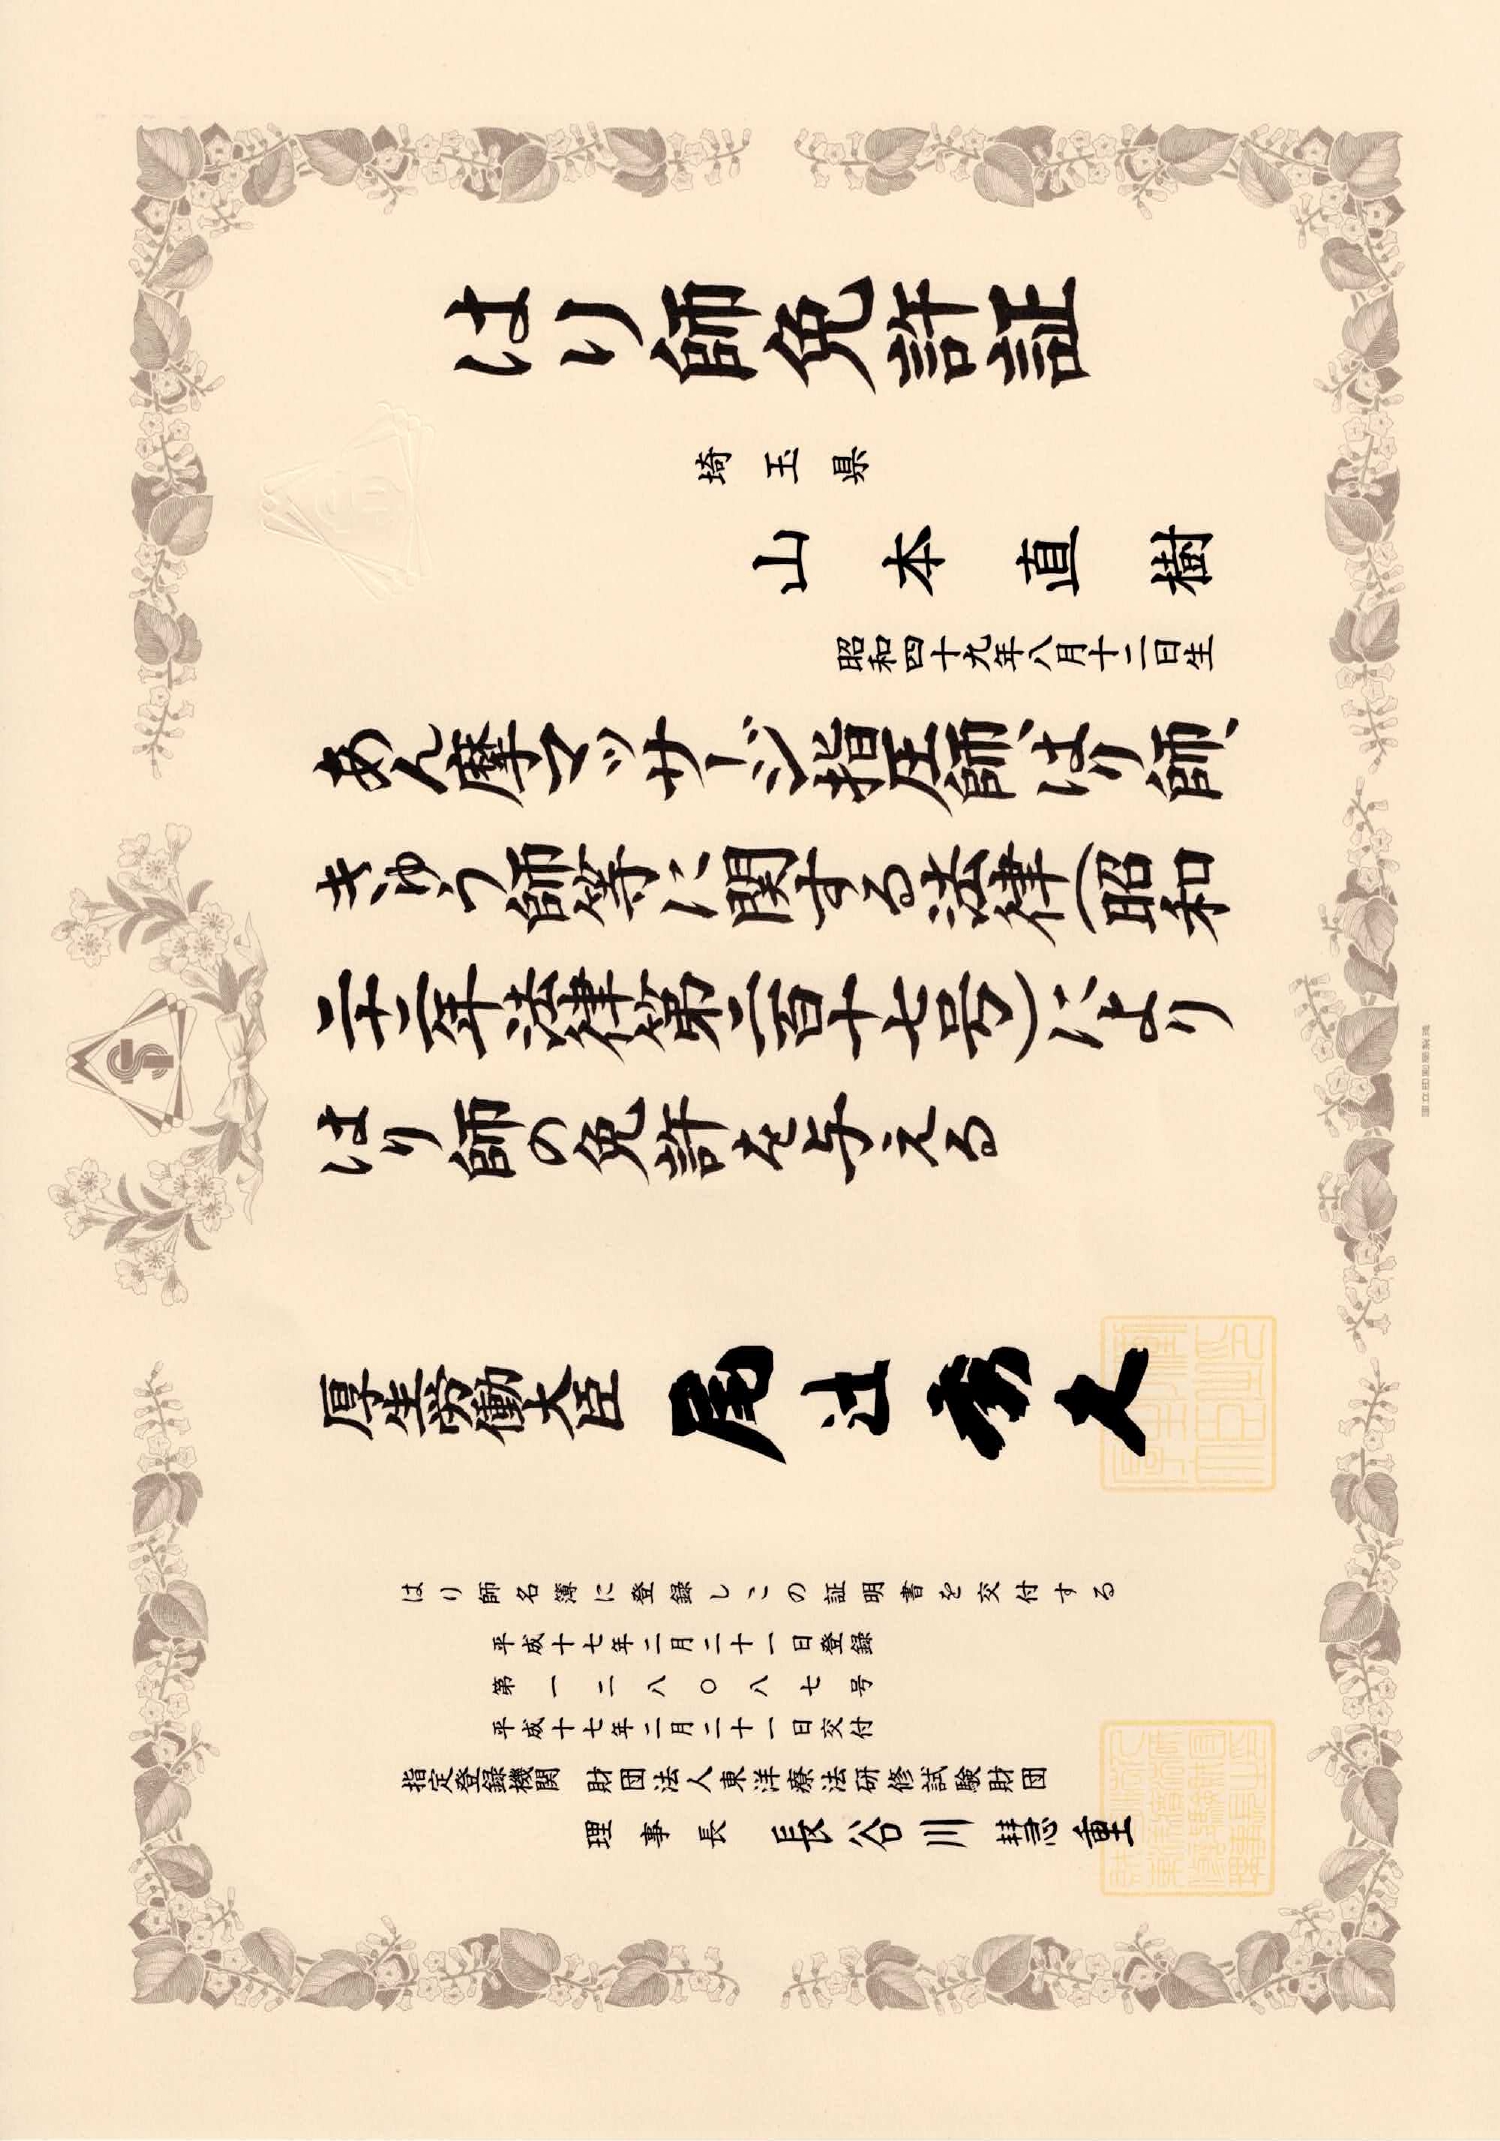 はり師免許証
埼玉県
山本直樹
昭和四十九年八月十二日生
あん摩マツサージ指圧師、はり師、
きゆう師等に関する法律(昭和
二十二年法律第二百十七号)により
はり師の免許を与える
厚生労働大臣 尾辻秀久
はり師名簿に登録しこの証明書を交付する
平成十七年二月二十一日登録
第一二八〇八七号
平成十七年二月二十一日交付
指定登録機関 財団法人東洋療法研修試験財団
理事長 長谷川慧重